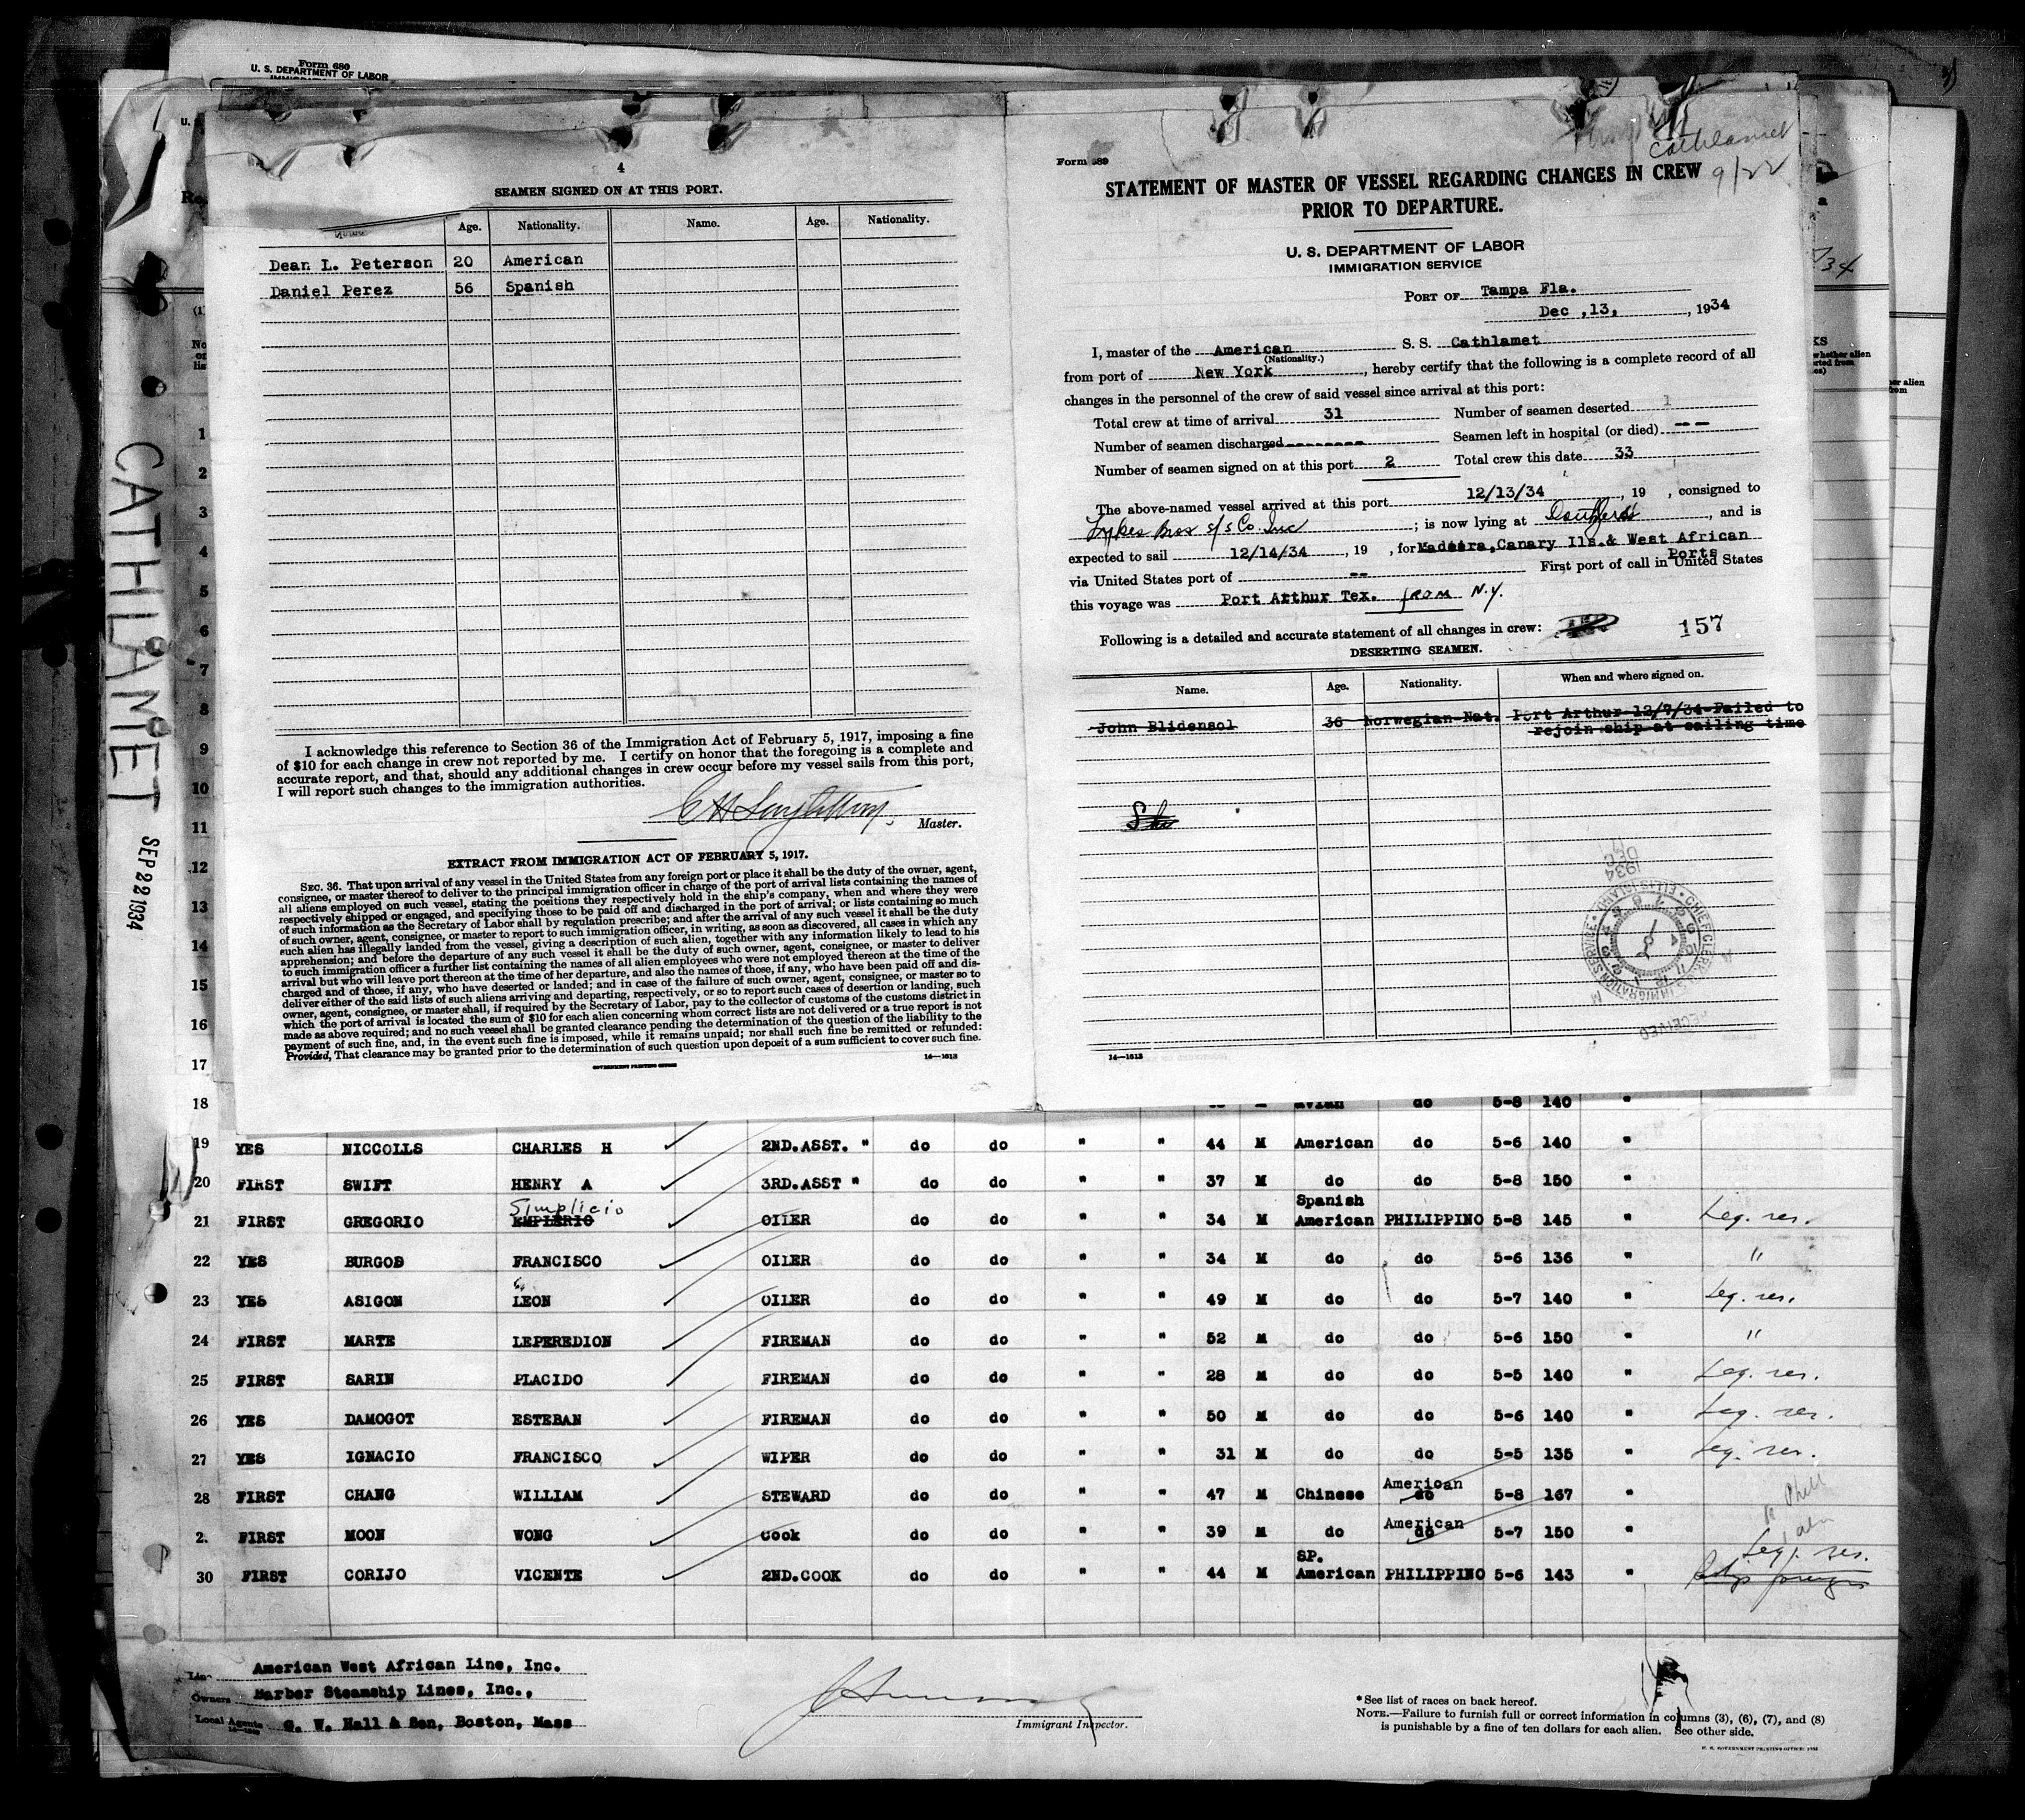 Form 680
U. S. DEPARTMENT OF LABOR
4
SEAMEN SIGNED ON AT THIS PORT.
Age. Nationality. Name. Age. Nationality.
Dean L. Peterson 20 American
Daniel Perez 56 Spanish
I acknowledge this reference to Section 36 of the Immigration Act of February 5, 1917, imposing a fine
of $10 for each change in crew not reported by me. I certify on honor that the foregoing is a complete and
accurate report, and that, should any additional changes in crew occur before my vessel sails from this port,
I will report such changes to the immigration authorities.
Master.
EXTRACT FROM IMMIGRATION ACT OF FEBRUARY 5, 1917.
SEC. 36. That upon arrival of any vessel in the United States from any foreign port or place it shall be the duty of the owner, agent,
consignee, or master thereof to deliver to the principal immigration officer in charge of the port of arrival lists containing the names of
all aliens employed on such vessel, stating the positions they respectively hold in the ship's company, when and where they were
respectively shipped or engaged, and specifying those to be paid off and discharged in the port of arrival; or lists containing so much
of such information as the Secretary of Labor shall by regulation prescribe; and after the arrival of any such vessel it shall be the duty
of such owner, agent, consignee, or master to report to such immigration officer, in writing, as soon as discovered, all cases in which any
such alien has illegally landed from the vessel, giving a description of such alien, together with any information likely to lead to his
apprehension; and before the departure of any such vessel it shall be the duty of such owner, agent, consignee, or master to deliver
to such immigration officer a further list containing the names of all alien employees who were not employed thereon at the time of the
arrival but who will leave port thereon at the time of her departure, and also the names of those, if any, who have been paid off and dis-
charged and of those, if any, who have deserted or landed; and in case of the failure of such owner, agent, consignee, or master so to
deliver either of the said lists of such aliens arriving and departing, respectively, or so to report such cases of desertion or landing, such
owner, agent, consignee, or master shall, if required by the Secretary of Labor, pay to the collector of customs of the customs district in
which the port of arrival is located the sum of $10 for each alien concerning whom correct lists are not delivered or a true report is not
made as above required; and no such vessel shall be granted clearance pending the determination of the question of the liability to the
payment of such fine, and, in the event such fine is imposed, while it remains unpaid; nor shall such fine be remitted or refunded:
Provided, That clearance may be granted prior to the determination of such question upon deposit of a sum sufficient to cover such fine.
GOVERNMENT PRINTING OFFICE 14—1613
Cathlamet
9/22
Form 689
STATEMENT OF MASTER OF VESSEL REGARDING CHANGES IN CREW
PRIOR TO DEPARTURE.
U. S. DEPARTMENT OF LABOR
IMMIGRATION SERVICE
PORT OF Tampa Fla.
Dec ,13, , 1934
I, master of the American S. S. Cathlamet
(Nationality.)
from port of New York , hereby certify that the following is a complete record of all
changes in the personnel of the crew of said vessel since arrival at this port:
Total crew at time of arrival 31 Number of seamen deserted 1
Number of seamen discharged -------- Seamen left in hospital (or died) -- --
Number of seamen signed on at this port 2 Total crew this date 33
The above-named vessel arrived at this port 12/13/34 , 19 , consigned to
Lykes Bros s/s Co. Inc ; is now lying at , and is
expected to sail 12/14/34 , 19 , for Madeira,Canary Ils.& West African
Ports
via United States port of -- First port of call in United States
this voyage was Port Arthur Tex. from N.Y.
Following is a detailed and accurate statement of all changes in crew: 157
DESERTING SEAMEN.
Name. Age. Nationality. When and where signed on.
John Blidensol 36 Norwegian-Nat. Port Arthur-12/7/34-Failed to
rejoin ship at sailing time
14—1613
CATHLAMET SEP 22 1934
1
2
3
4
5
6
7
8
9
10
11
12
13
14
15
16
17
18 do 5-8 140 "
19 YES NICCOLLS CHARLES H 2ND.ASST. " do do " " 44 M American do 5-6 140 "
20 FIRST SWIFT HENRY A 3RD.ASST " do do " " 37 M do do 5-8 150 "
Simplicio Spanish
21 FIRST GREGORIO EMPLERIO OILER do do " " 34 M American PHILIPPINO 5-8 145 " Leg. res.
22 YES BURGOS FRANCISCO OILER do do " " 34 M do do 5-6 136 " "
23 YES ASIGON LEON OILER do do " " 49 M do do 5-7 140 " Leg. res.
24 FIRST MARTE LEPEREDION FIREMAN do do " " 52 M do do 5-6 150 " "
25 FIRST SARIN PLACIDO FIREMAN do do " " 28 M do do 5-5 140 " Leg. res.
26 YES DAMOGOT ESTEBAN FIREMAN do do " " 50 M do do 5-6 140 " Leg. res.
27 YES IGNACIO FRANCISCO WIPER do do " " 31 M do do 5-5 135 " Leg. res.
American
28 FIRST CHANG WILLIAM STEWARD do do " " 47 M Chinese do 5-8 167 "
American
2. FIRST MOON WONG Cook do do " " 39 M do do 5-7 150 "
SP. Leg. res.
30 FIRST CORIJO VICENTE 2ND.COOK do do " " 44 M American PHILIPPINO 5-6 143 "
Line American West African Line, Inc.
Owners Barber Steamship Lines, Inc.,
Local Agents O. W. Hall & Son, Boston, Mass
Immigrant Inspector.
*See list of races on back hereof.
NOTE.—Failure to furnish full or correct information in columns (3), (6), (7), and (8)
is punishable by a fine of ten dollars for each alien. See other side.